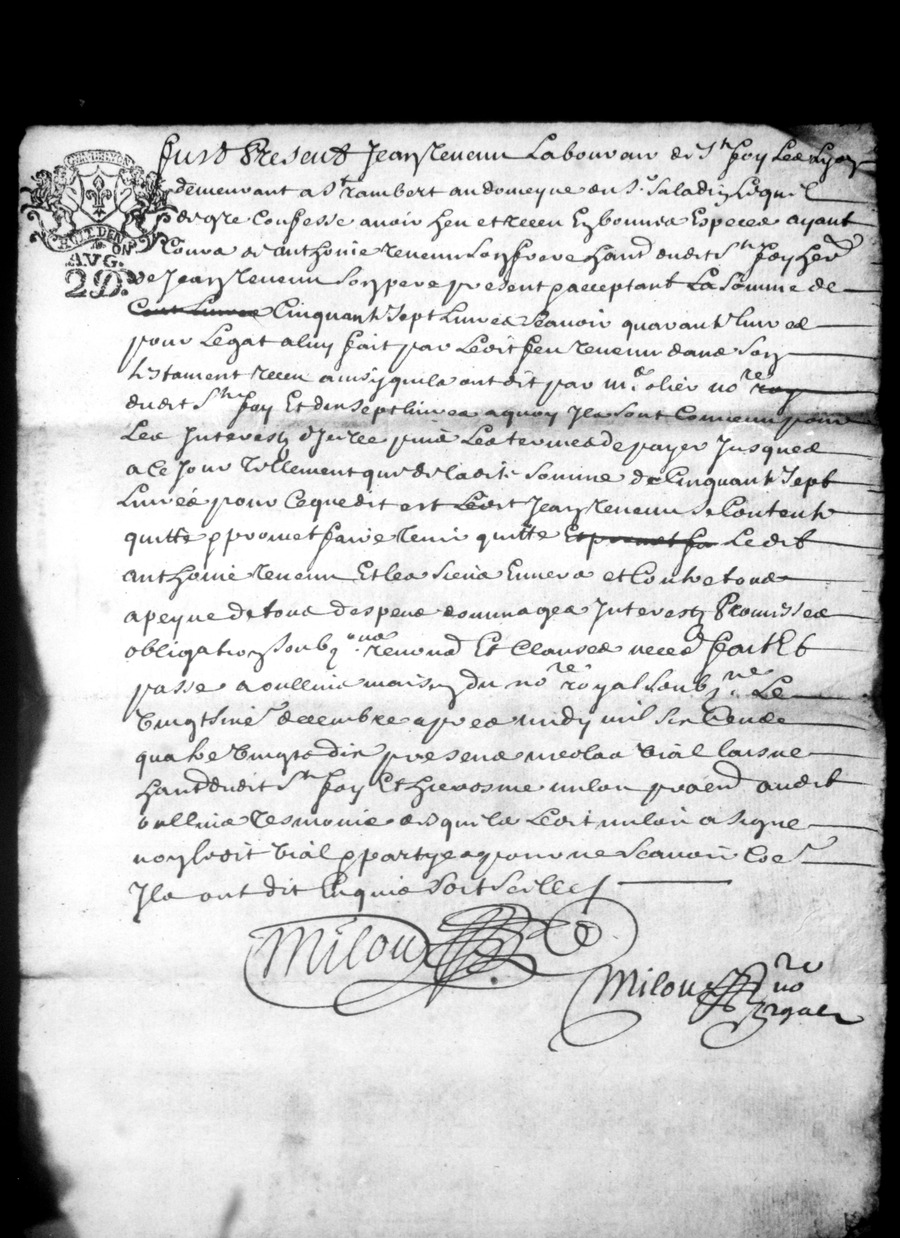 HUIT DEN
ON
AUG.
2D.
Fust Present Jean revenu Laboureur de Ste foy Les Lyon
demeurant a St rambert au domeyne du Sr Saladin Lequel
de gre Confesse avoir heu et receu En bonnes Especes ayant
Cours de anthoine revenu son frere hant dudit Ste foy her
de Jean revenu son pere present acceptant La Somme de
Cent Livres Cinquant Sept Livres Scavoir quarant livres
pour Legat a luy fait par Ledit feu revenu dans Son
testament receu ainsy quils ont dit par me olier nore roy
dudit Ste foy Et dix sept livres a quoy Ils sont Convenu pour
Les Interestz d'Icelle puis Les termes de payer Jusques
a ce Jour tellement que de ladite Somme de Cinquant Sept
Livres pour Ce que dit est Ledit Jean revenu se Contente
quitte p promet faire tenir quitte Et promet fa Ledit
anthoine revenu Et les Siens Envers et Contre tous
a peyne de tous despens dommages Interestz Promisses
obligation renond Et Clauses necess fait Et
passe a oullins maison du nore royal Soubzne Le
vingt sixie decembre apres midy mil Six Cends
quatre vingts dix presens nicolas vial laisne
hant dudit Ste foy Et hierosme milon praend audit
oullins tesmoins desquels Ledit milon a signe
non ledit vial p partyes pour ne Scavoir Coe
Ils ont dit Enquis Soit Selle
Milon
Milon nore
royal